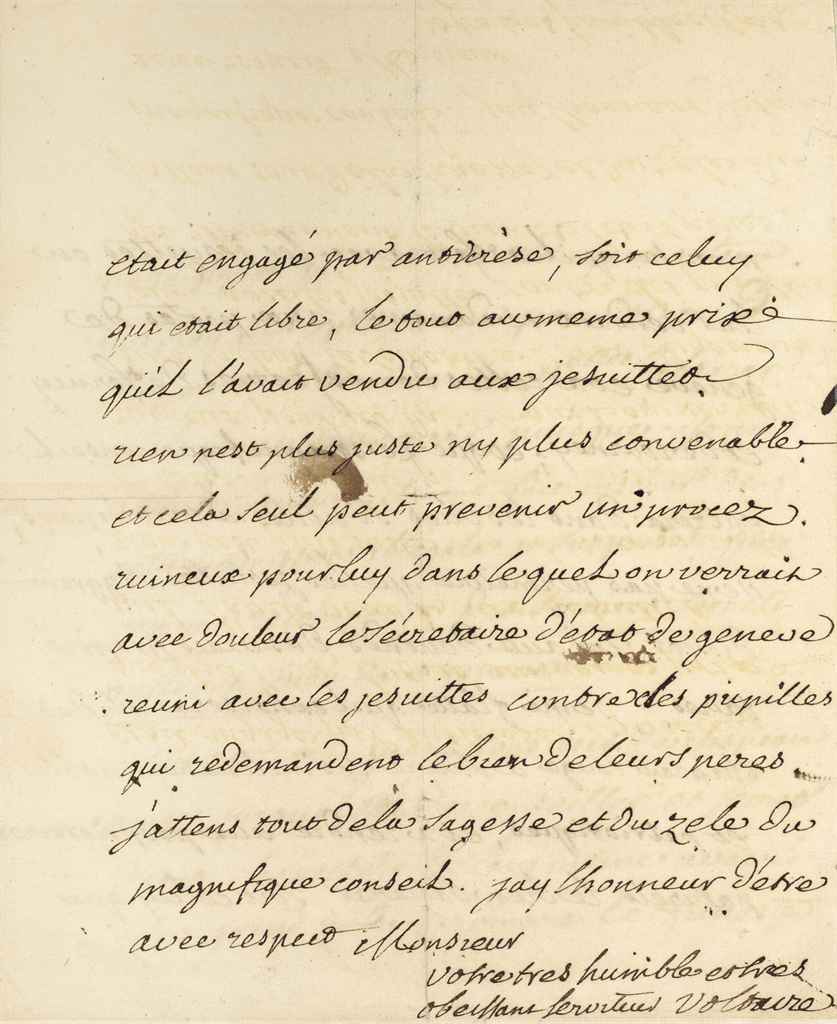 etait engagé par anticrèse, soit celuy
qui etait libre, le tout au meme prix
qu'il l'avait vendu aux jesuittes
rien nest plus juste ny plus convenable.
et cela seul peut prevenir un procez
ruineux pour luy dans le quel on verrait
avec douleur le sécretaire d'état de geneve
reuni avec les jesuittes contre les pupilles
qui redemandent le bien de leurs peres
j'attens tout de la sagesse et du zele du
magnifique conseil. jay lhonneur d'être
avec respect Monsieur
votre tres humble et tres
obeissant serviteur Voltaire